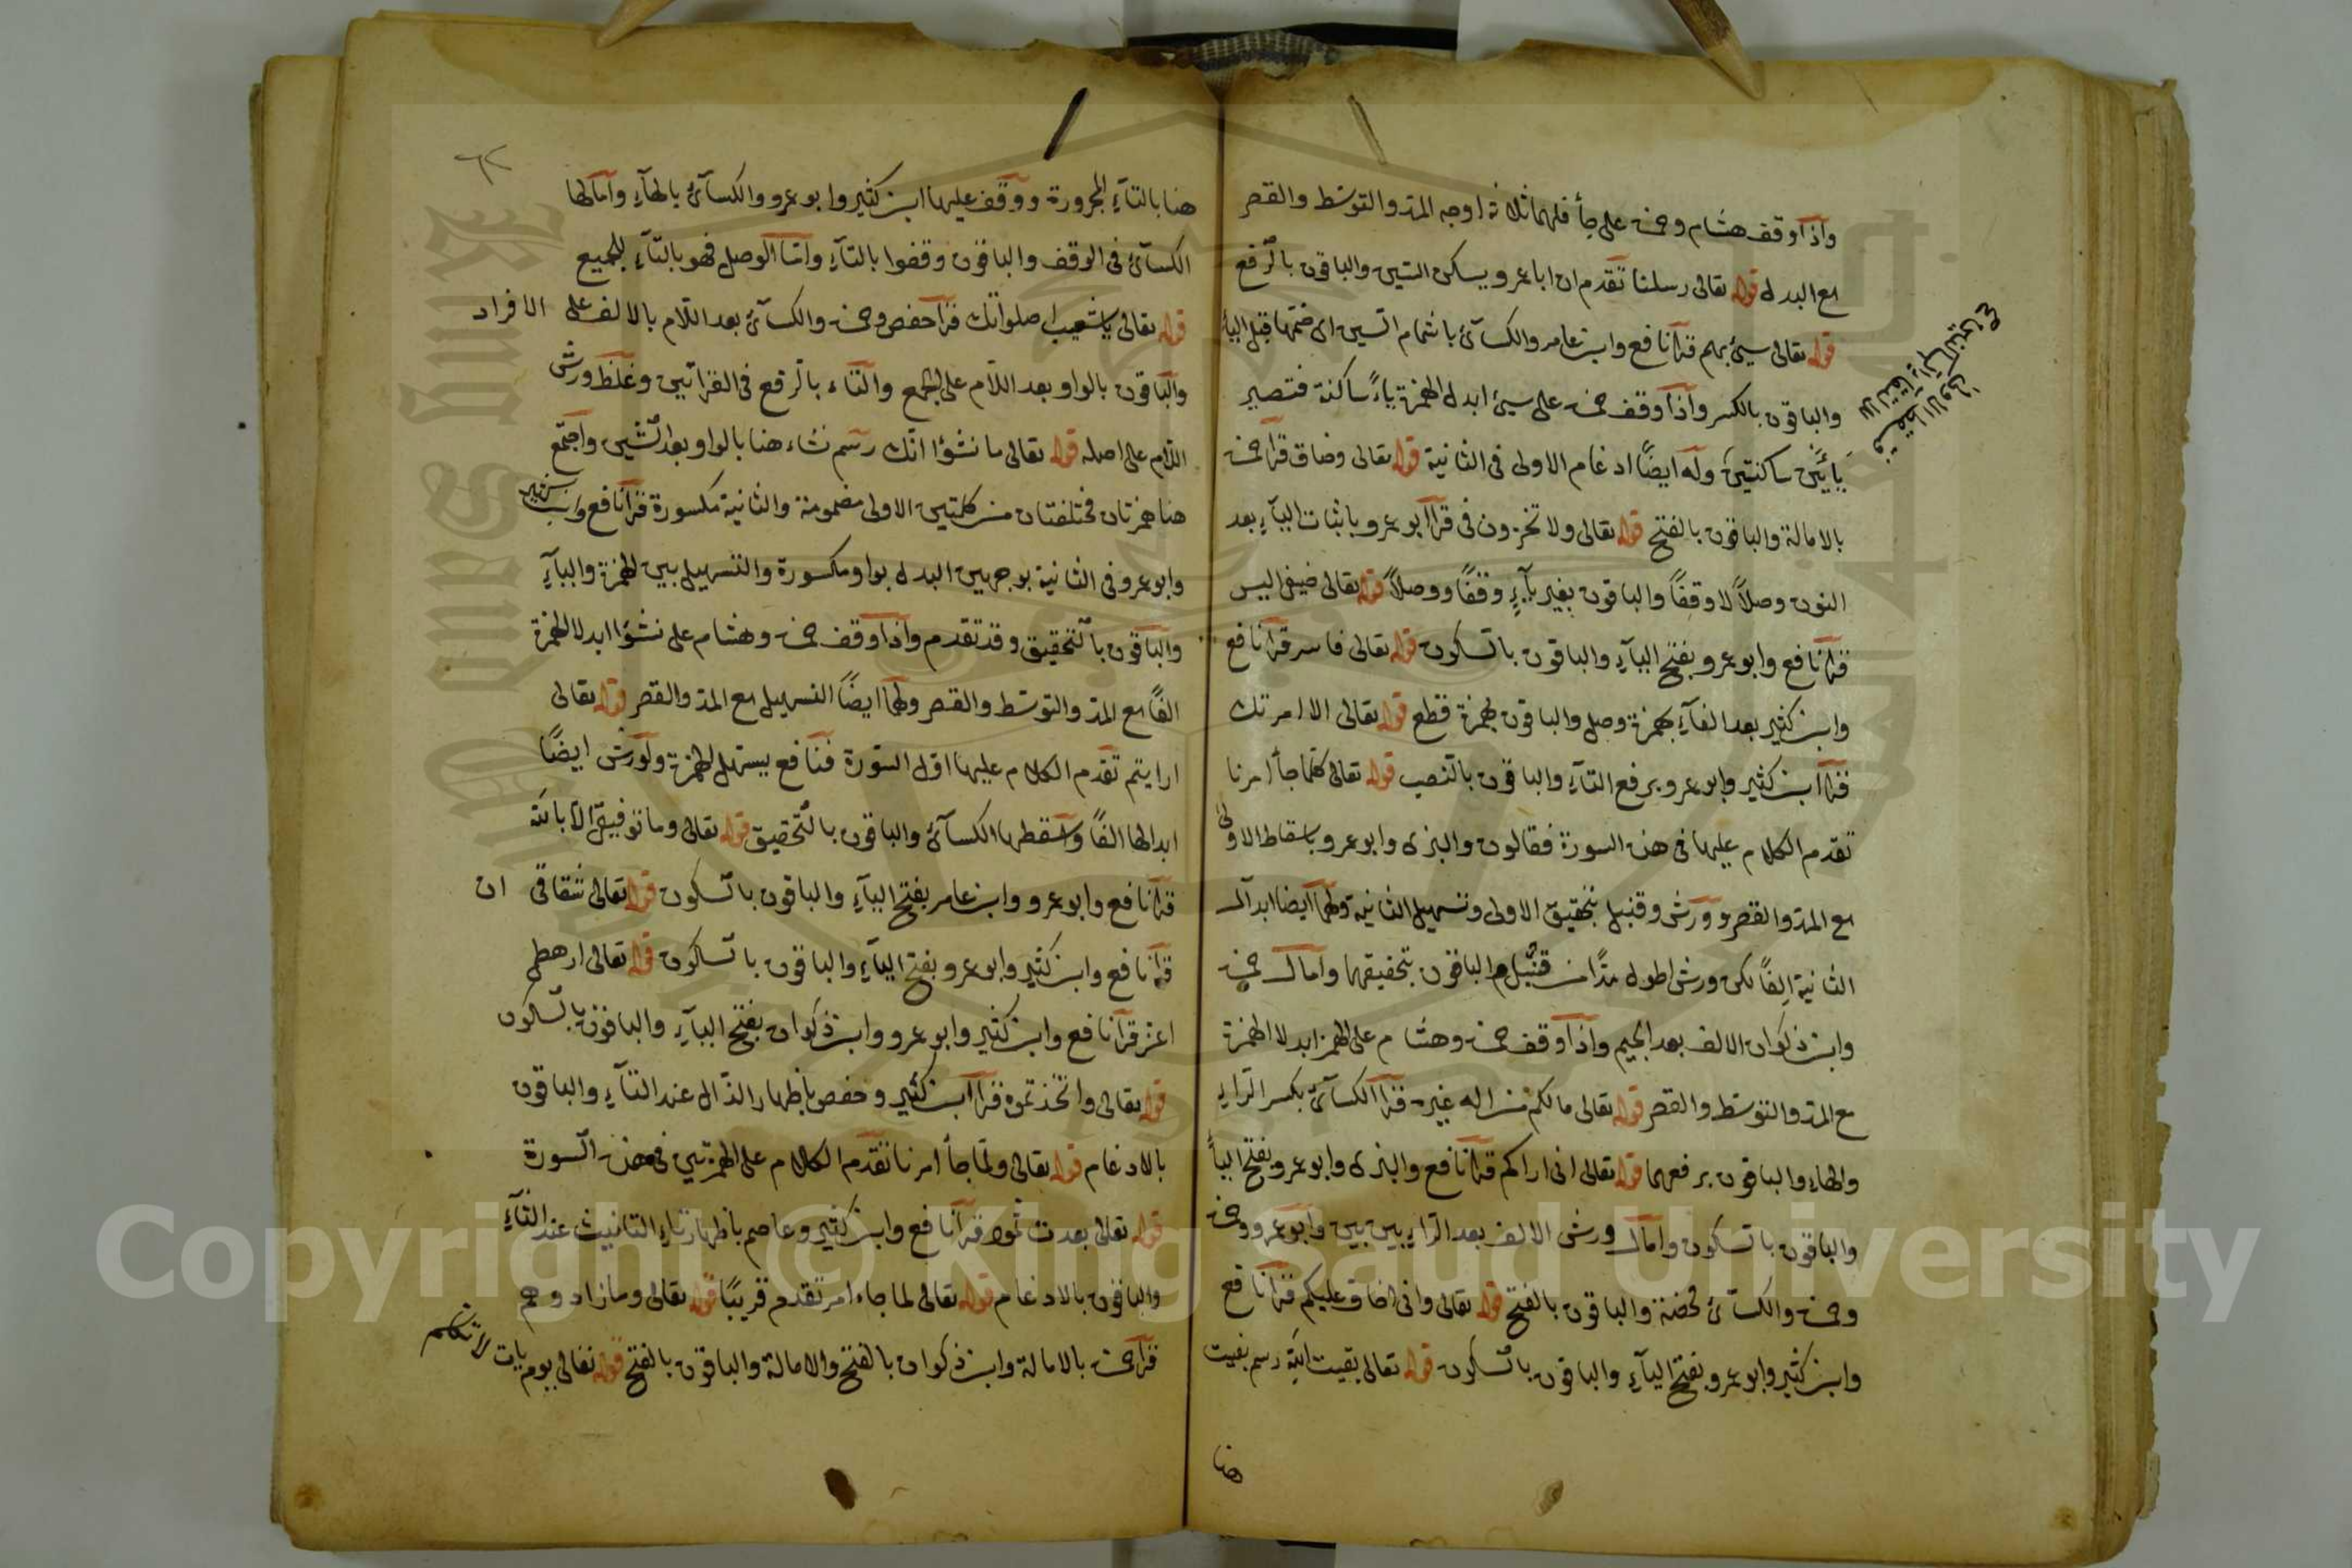 وإذا وقف هشام وحمزة على جأ فلهما ثلاثة اوجه المد والتوسط والقصر
مع البدل قوله تعالى رسلنا تقدم ان ابا عمرو يسكن السين والباقون بالرفع
قوله تعالى سيئ بهم قرأ نافع وابن عامر والكسائ باشمام السين اى ضمها قبل اليأ
والباقون بالكسر وإذا وقف حمزة على سيئ ابدل الهمزة ياءً ساكنة فتصير
يائين ساكنتين وله ايضًا ادغام الاولى فى الثانية قوله تعالى وضاق قرأ حمزة
بالامالة والباقون بالفتح قوله تعالى ولا تخزون فى قرأ ابو عمرو باثبات اليآء بعد
النون وصلاً لا وقفًا والباقون بغير يآءٍ وقفًا ووصلاً قوله تعالى ضيفى اليس
قرأ نافع وابو عمرو بفتح اليآء والباقون بالسكون قوله تعالى فاسر قرأ نافع
وابن كثير بعد الفآء بهمزة وصل والباقون بهمزة قطع قوله تعالى الا امرتك
قرأ ابن كثير وابو عمرو برفع التآء والباقون بالنصب قوله تعالى كلما جأ امرنا
تقدم الكلام عليها فى هذه السورة فقالون والبزى وابو عمرو باسقاط الاولى
مع المد والقصر وورش وقنبل بتحقيق الاولى وتسهيل الثانية ولهما ايضا ابدال
الثانية الفًا لكن ورش اطول مدًا من قنبل والباقون بتحقيقهما وامال حمزة
وابن ذكوان الالف بعد الجيم وإذا وقف حمزة وهشام على الهمز ابدلا الهمزة
مع المد والتوسط والقصر قوله تعالى مالكم من اله غيره قرأ الكسائ بكسر الراء
والهاء والباقون برفعهما قوله تعالى انى اراكم قرأ نافع والبزى وابو عمرو بفتح اليأ
والباقون بالسكون وامال ورش الالف بعد الراء بين بين وابو عمرو وحمزة
وحمزة والكسائ محضة والباقون بالفتح قوله تعالى وانى اخاف عليكم قرأ نافع
وابن كثير وابو عمرو بفتح اليآء والباقون بالسكون قوله تعالى بقيت الله رسم بقيت
هنا
هنا بالتآء المجرورة ووقف عليها ابن كثير وابو عمرو والكسائ بالهآء وامالها
الكسائ فى الوقف والباقون وقفوا بالتآء واما الوصل فهو بالتآء للجميع
قوله تعالى يا شعيب اصلواتك قرأ حفص وحمزة والكسائ بعد اللام بالالف على الافراد
والباقون بالواو بعد اللام على الجمع والتاء بالرفع فى القراتين وغلظ ورش
اللام على اصله قوله تعالى ما نشؤا انك رسم نشاء هنا بالواو بعد الشين واجتمع
هنا همزتان مختلفتان من كلمتين الاولى مضمومة والثانية مكسورة قرأ نافع وابن كثير
وابو عمرو فى الثانية بوجهين البدل بواو مكسورة والتسهيل بين الهمزة واليآء
والباقون بالتحقيق وقد تقدم وإذا وقف حمزة وهشام على نشؤا ابدلا الهمزة
الفًا مع المد والتوسط والقصر ولهما ايضًا التسهيل مع المد والقصر قوله تعالى
ارايتم تقدم الكلام عليها اول السورة فنافع يسهل الهمزة ولورش ايضًا
ابدالها الفًا واسقطها الكسائ والباقون بالتحقيق قوله تعالى وما توفيقى الا بالله
قرأ نافع وابو عمرو وابن عامر بفتح اليآء والباقون بالسكون قوله تعالى شقاقى ان
قرأ نافع وابن كثير وابو عمرو بفتح اليآء والباقون بالسكون قوله تعالى ارهطى
اعز قرأ نافع وابن كثير وابو عمرو وابن ذكوان بفتح اليآء والباقون بالسكون
قوله تعالى واتخذتموه قرأ ابن كثير وحفص باظهار الذال عند التآء والباقون
بالادغام قوله تعالى ولما جأ امرنا تقدم الكلام على الهمزتين فى هذه السورة
قوله تعالى بعدت ثمود قرأ نافع وابن كثير وعاصم باظهار تاء التانيث عند الثآء
والباقون بالادغام قوله تعالى لما جاء امر تقدم قريبًا قوله تعالى وما زادوهم
قرأ حمزة بالامالة وابن ذكوان بالفتح والامالة والباقون بالفتح قوله تعالى يوم يات لا تكلم
Copyright © King Saud University